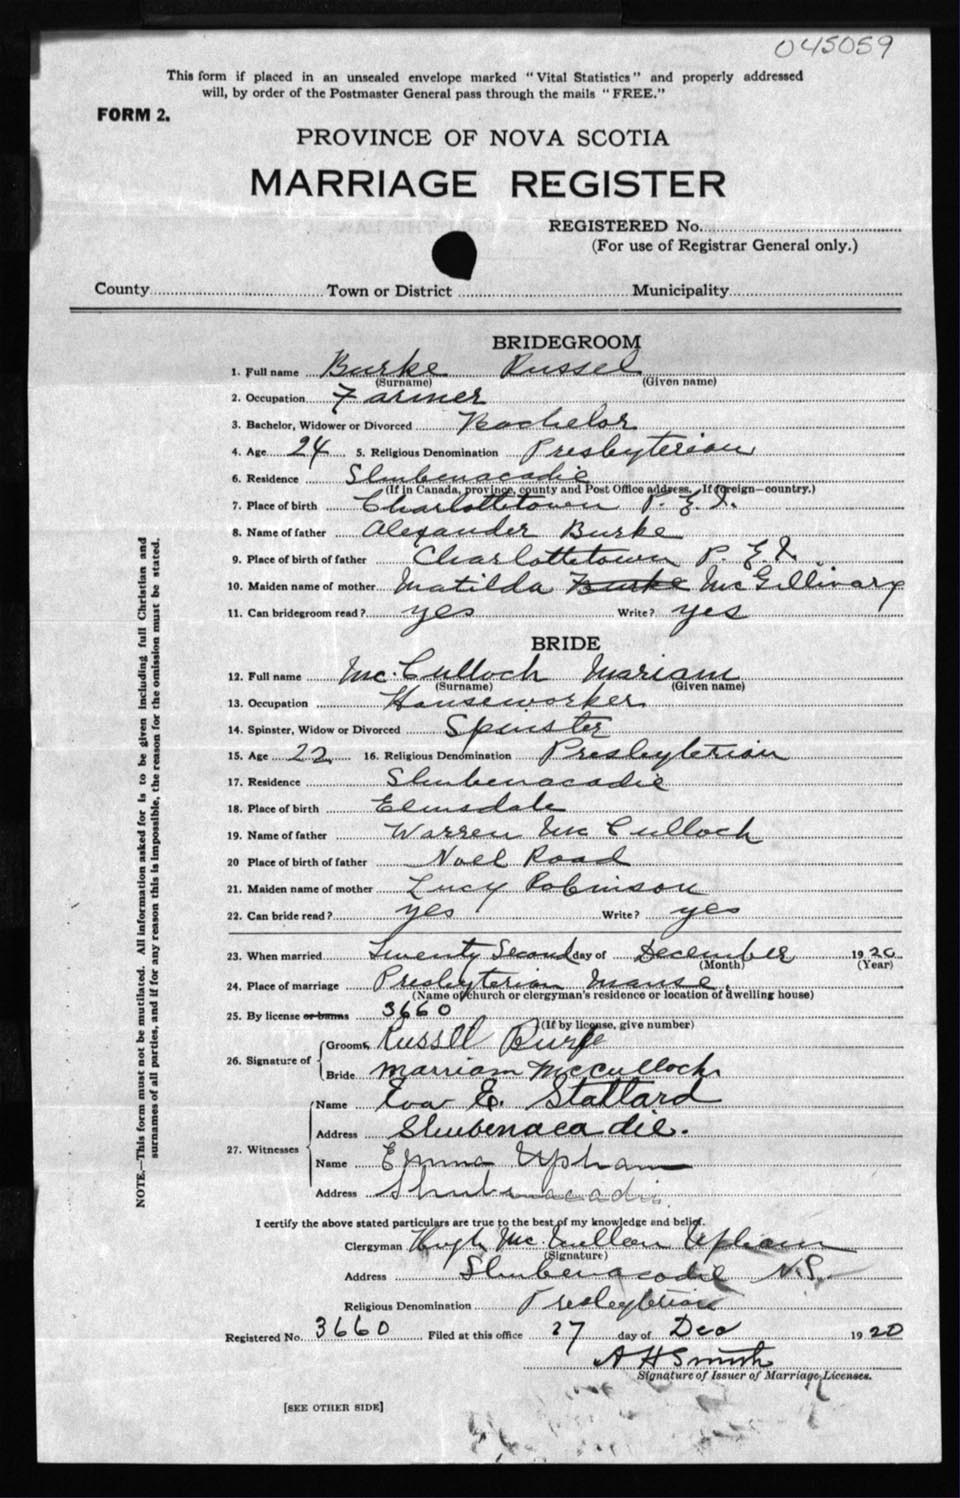 045059
This form if placed in an unsealed envelope marked "Vital Statistics" and properly addressed
will, by order of the Postmaster General pass through the mails "FREE."
FORM 2.
PROVINCE OF NOVA SCOTIA
MARRIAGE REGISTER
REGISTERED No.
(For use of Registrar General only.)
County Town or District Municipality
BRIDEGROOM
1. Full name Burke Russel
(Surname) (Given name)
2. Occupation Farmer
3. Bachelor, Widower or Divorced Bachelor
4. Age 24 5. Religious Denomination Presbyterian
6. Residence Shubenacadie
(If in Canada, province, county and Post Office address. If foreign—country.)
7. Place of birth Charlottetown P. E. I.
8. Name of father Alexander Burke
9. Place of birth of father Charlottetown P. E. I.
10. Maiden name of mother Matilda Burke McGillivary
11. Can bridegroom read? yes Write? yes
BRIDE
12. Full name Mc.Culloch Mariam
(Surname) (Given name)
13. Occupation Houseworker
14. Spinster, Widow or Divorced Spinster
15. Age 22 16. Religious Denomination Presbyterian
17. Residence Shubenacadie
18. Place of birth Elmsdale
19. Name of father Warren McCulloch
20 Place of birth of father Noel Road
21. Maiden name of mother Lucy Robinson
22. Can bride read? yes Write? yes
23. When married Twenty Second day of December 1920
(Month) (Year)
24. Place of marriage Presbyterian Manse.
(Name of church or clergyman's residence or location of dwelling house)
25. By license or banns 3660
(If by license, give number)
26. Signature of
Groom Russell Burke
Bride Marriam McCulloch
27. Witnesses
Name Eva E. Stallard
Address Shubenacadie.
Name Emma Upham
Address Shubenacadie
I certify the above stated particulars are true to the best of my knowledge and belief.
Clergyman Hugh McMullen Upham
(Signature)
Address Shubenacadie N.S.
Religious Denomination Presbyterian
Registered No. 3660 Filed at this office 27 day of Dec 1920
A H Smith
Signature of Issuer of Marriage Licenses.
[SEE OTHER SIDE]
NOTE.—This form must not be mutilated. All information asked for is to be given including full Christian and
surnames of all parties, and if for any reason this is impossible, the reason for the omission must be stated.